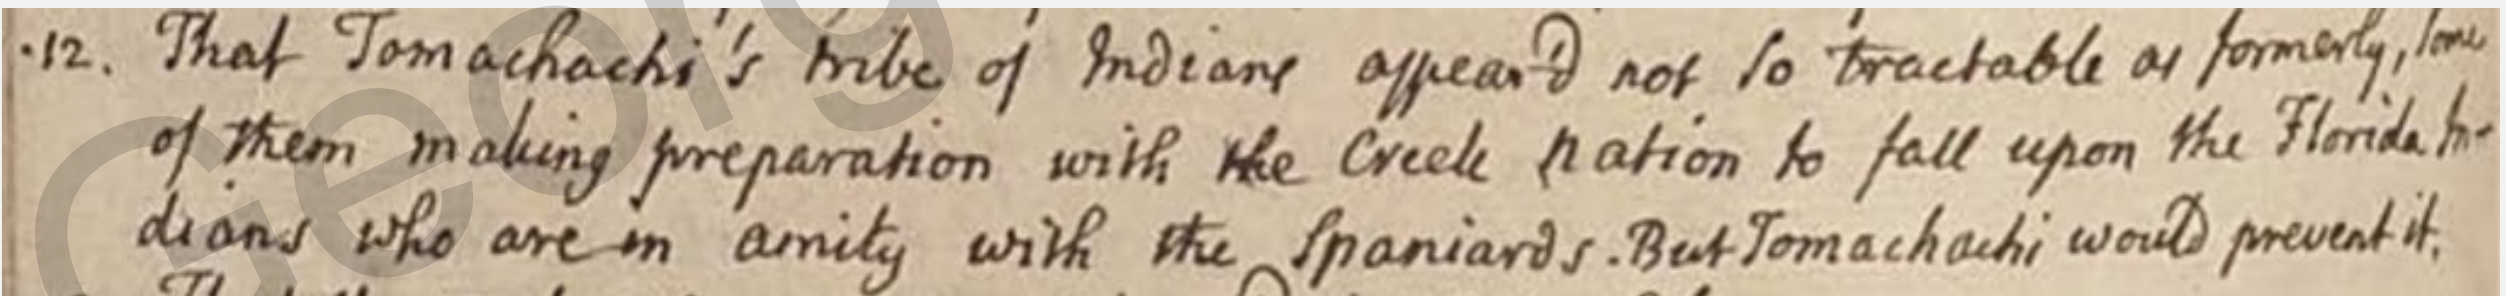 .12. That Tomachachi's tribe of Indians appear'd not so tractable as formerly, some
of them making preparation with the Creek Nation to fall upon the Florida In-
dians who are in amity with the Spaniards. But Tomachachi would prevent it.